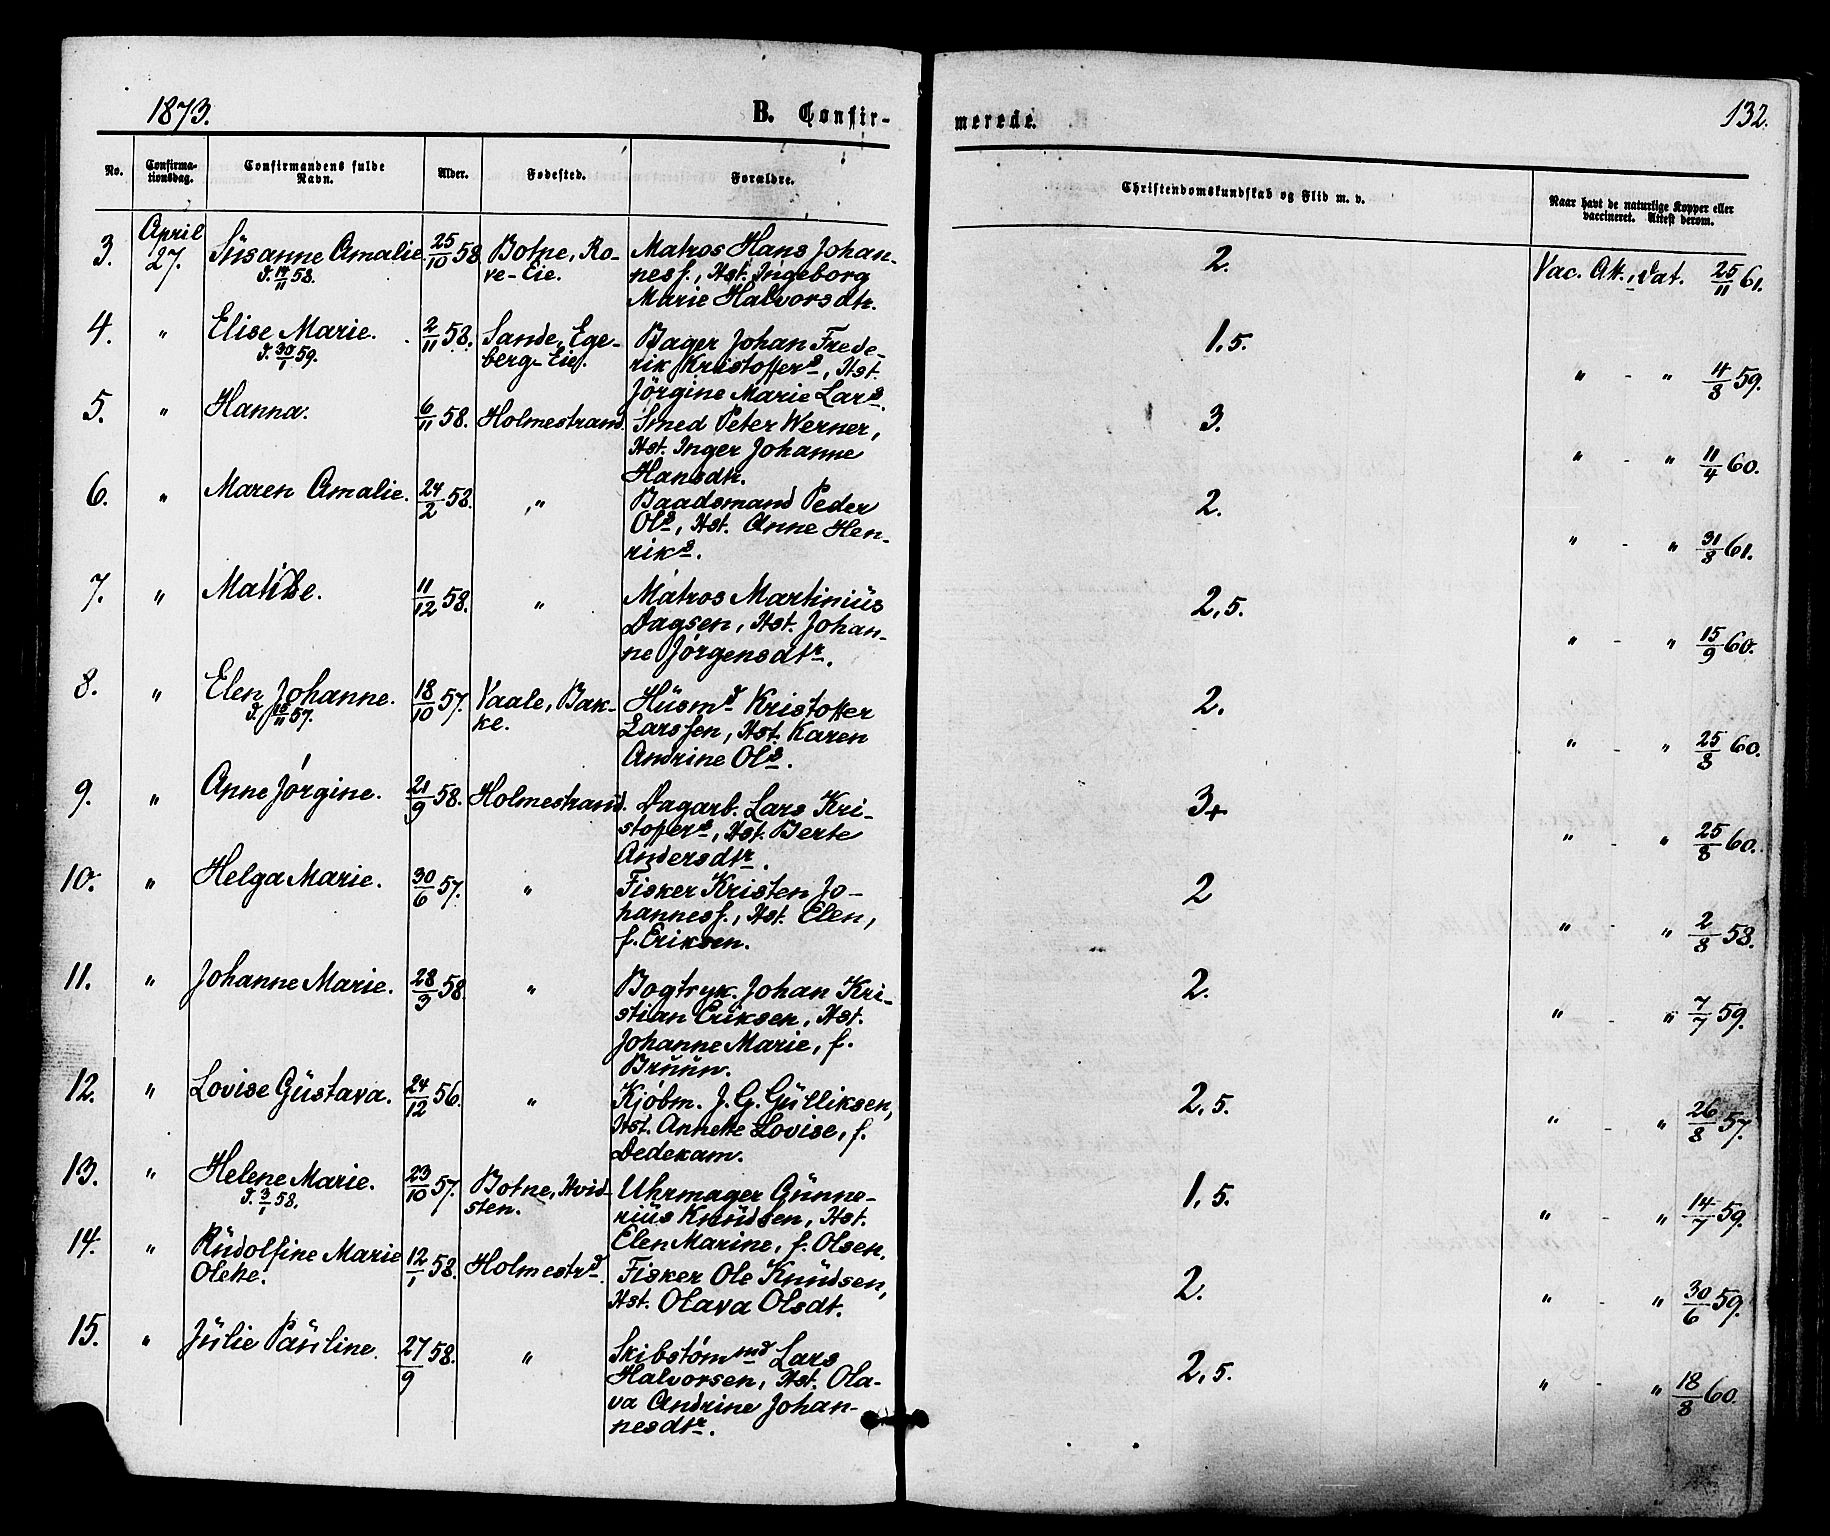 1873.
B. Confir-
merede.
132.
No.
Confirma-
tionsdag.
Confirmandens fulde
Navn.
Alder.
Fødested.
Forældre.
Christendomskundskab og Flid m. v.
Naar havt de naturlige Kopper eller
vaccineret. Attest derom.
3. April 27. Susanne Amalie. 25/10 58. Botne, Ro- Matros Hans Johan- 2. Vac. Att., Dat. 25/11 61.
d. 14/11 58. ve-Eie. ness., Hst. Ingeborg
Marie Halvorsdtr.
4. " Elise Marie. 2/11 58. Sande, Ege- Bager Johan Frede- 1,5. " - " 4/8 59.
d. 30/1 59. berg-Eie. rik Kristoffers, Hst.
Jörgine Marie Lars.
5. " Hanna. 6/11 58. Holmestrand. Smed Peter Werner, 3. " - " 11/4 60.
Hst. Inger Johanne
Hansdtr.
6. " Maren Amalie. 24/2 58. " Baadsmand Peder 2. " - " 31/8 61.
Ols, Hst. Anne Hen-
riks.
7. " Matilde. 11/12 58. " Matros Martinius 2,5. " - " 15/9 60.
Dagsen, Hst. Johan-
ne Jørgensdtr.
8. " Elen Johanne. 18/10 57. Vaale, Bak- Husmd Kristoffer 2. " - " 25/8 60.
d. 15/11 57. ke. Larssen, Hst. Karen
Andrine Ols.
9. " Anne Jørgine. 21/9 58. Holmestrand. Dagarb. Lars Kri- 3+ " - " 25/8 60.
stofers, Hst. Berte
Andersdtr.
10. " Helga Marie. 30/6 57. " Fisker Kristen Jo- 2 " - " 2/8 58.
hanness., Hst. Elen,
f. Eriksen.
11. " Johanne Marie. 28/3 58. " Bogtryk. Johan Kri- 2. " - " 7/7 59.
stian Eriksen, Hst.
Johanne Marie, f.
Bruun.
12. " Lovise Gustava. 24/12 56. " Kjøbm. J. G. Gulliksen, 2,5. " - " 26/8 57.
Hst. Annette Lovise, f.
Dedekam.
13. " Helene Marie. 23/10 57. Botne, Hvid- Uhrmager Gunne- 1,5. " - " 14/7 59.
d. 3/1 58. sten. rius Knudsen, Hst.
Elen Marine, f. Olsen.
14. " Rudolfine Marie 12/1 58. Holmestrd. Fisker Ole Knudsen, 2. " - " 30/6 59.
Olette. Hst. Olava Olsdt.
15. " Julie Pauline. 27/9 58. " Skibstømmd Lars 2,5. " - " 18/8 60.
Halvorsen, Hst. Ola-
va Andrine Johan-
nesdtr.